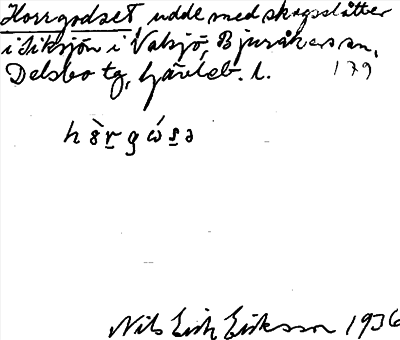 Horrgodset, udde med skogsslåtter
i Siksjön i Valsjö, Bjuråkers sn,
Delsbo tg, Gävleb. l. 179
h ò̈r̲ g ώ s̲ ə
Nils Erik Eriksson 1936